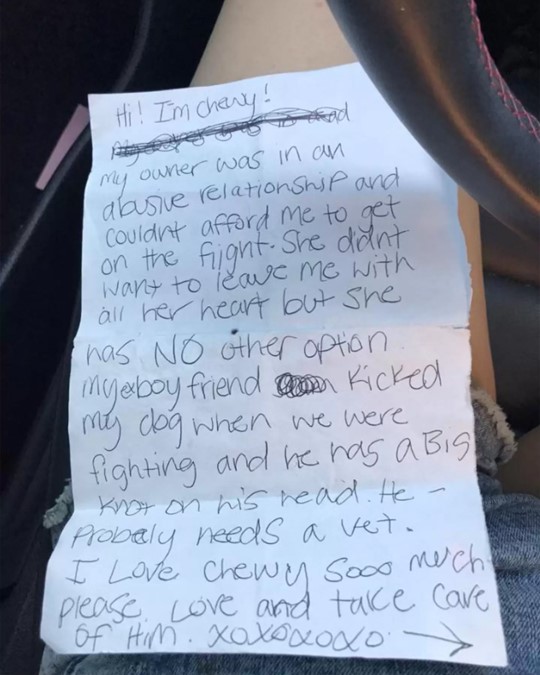 Hi! I'm chewy!
my owner was in an
abusive relationship and
couldnt afford me to get
on the flight. She didnt
want to leave me with
all her heart but she
has NO other option
my ex boyfriend kicked
my dog when we were
fighting and he has a Big
knot on his head. He -
Probely needs a vet.
I Love Chewy Sooo much
please Love and take care
of Him. xoxoxoxo →